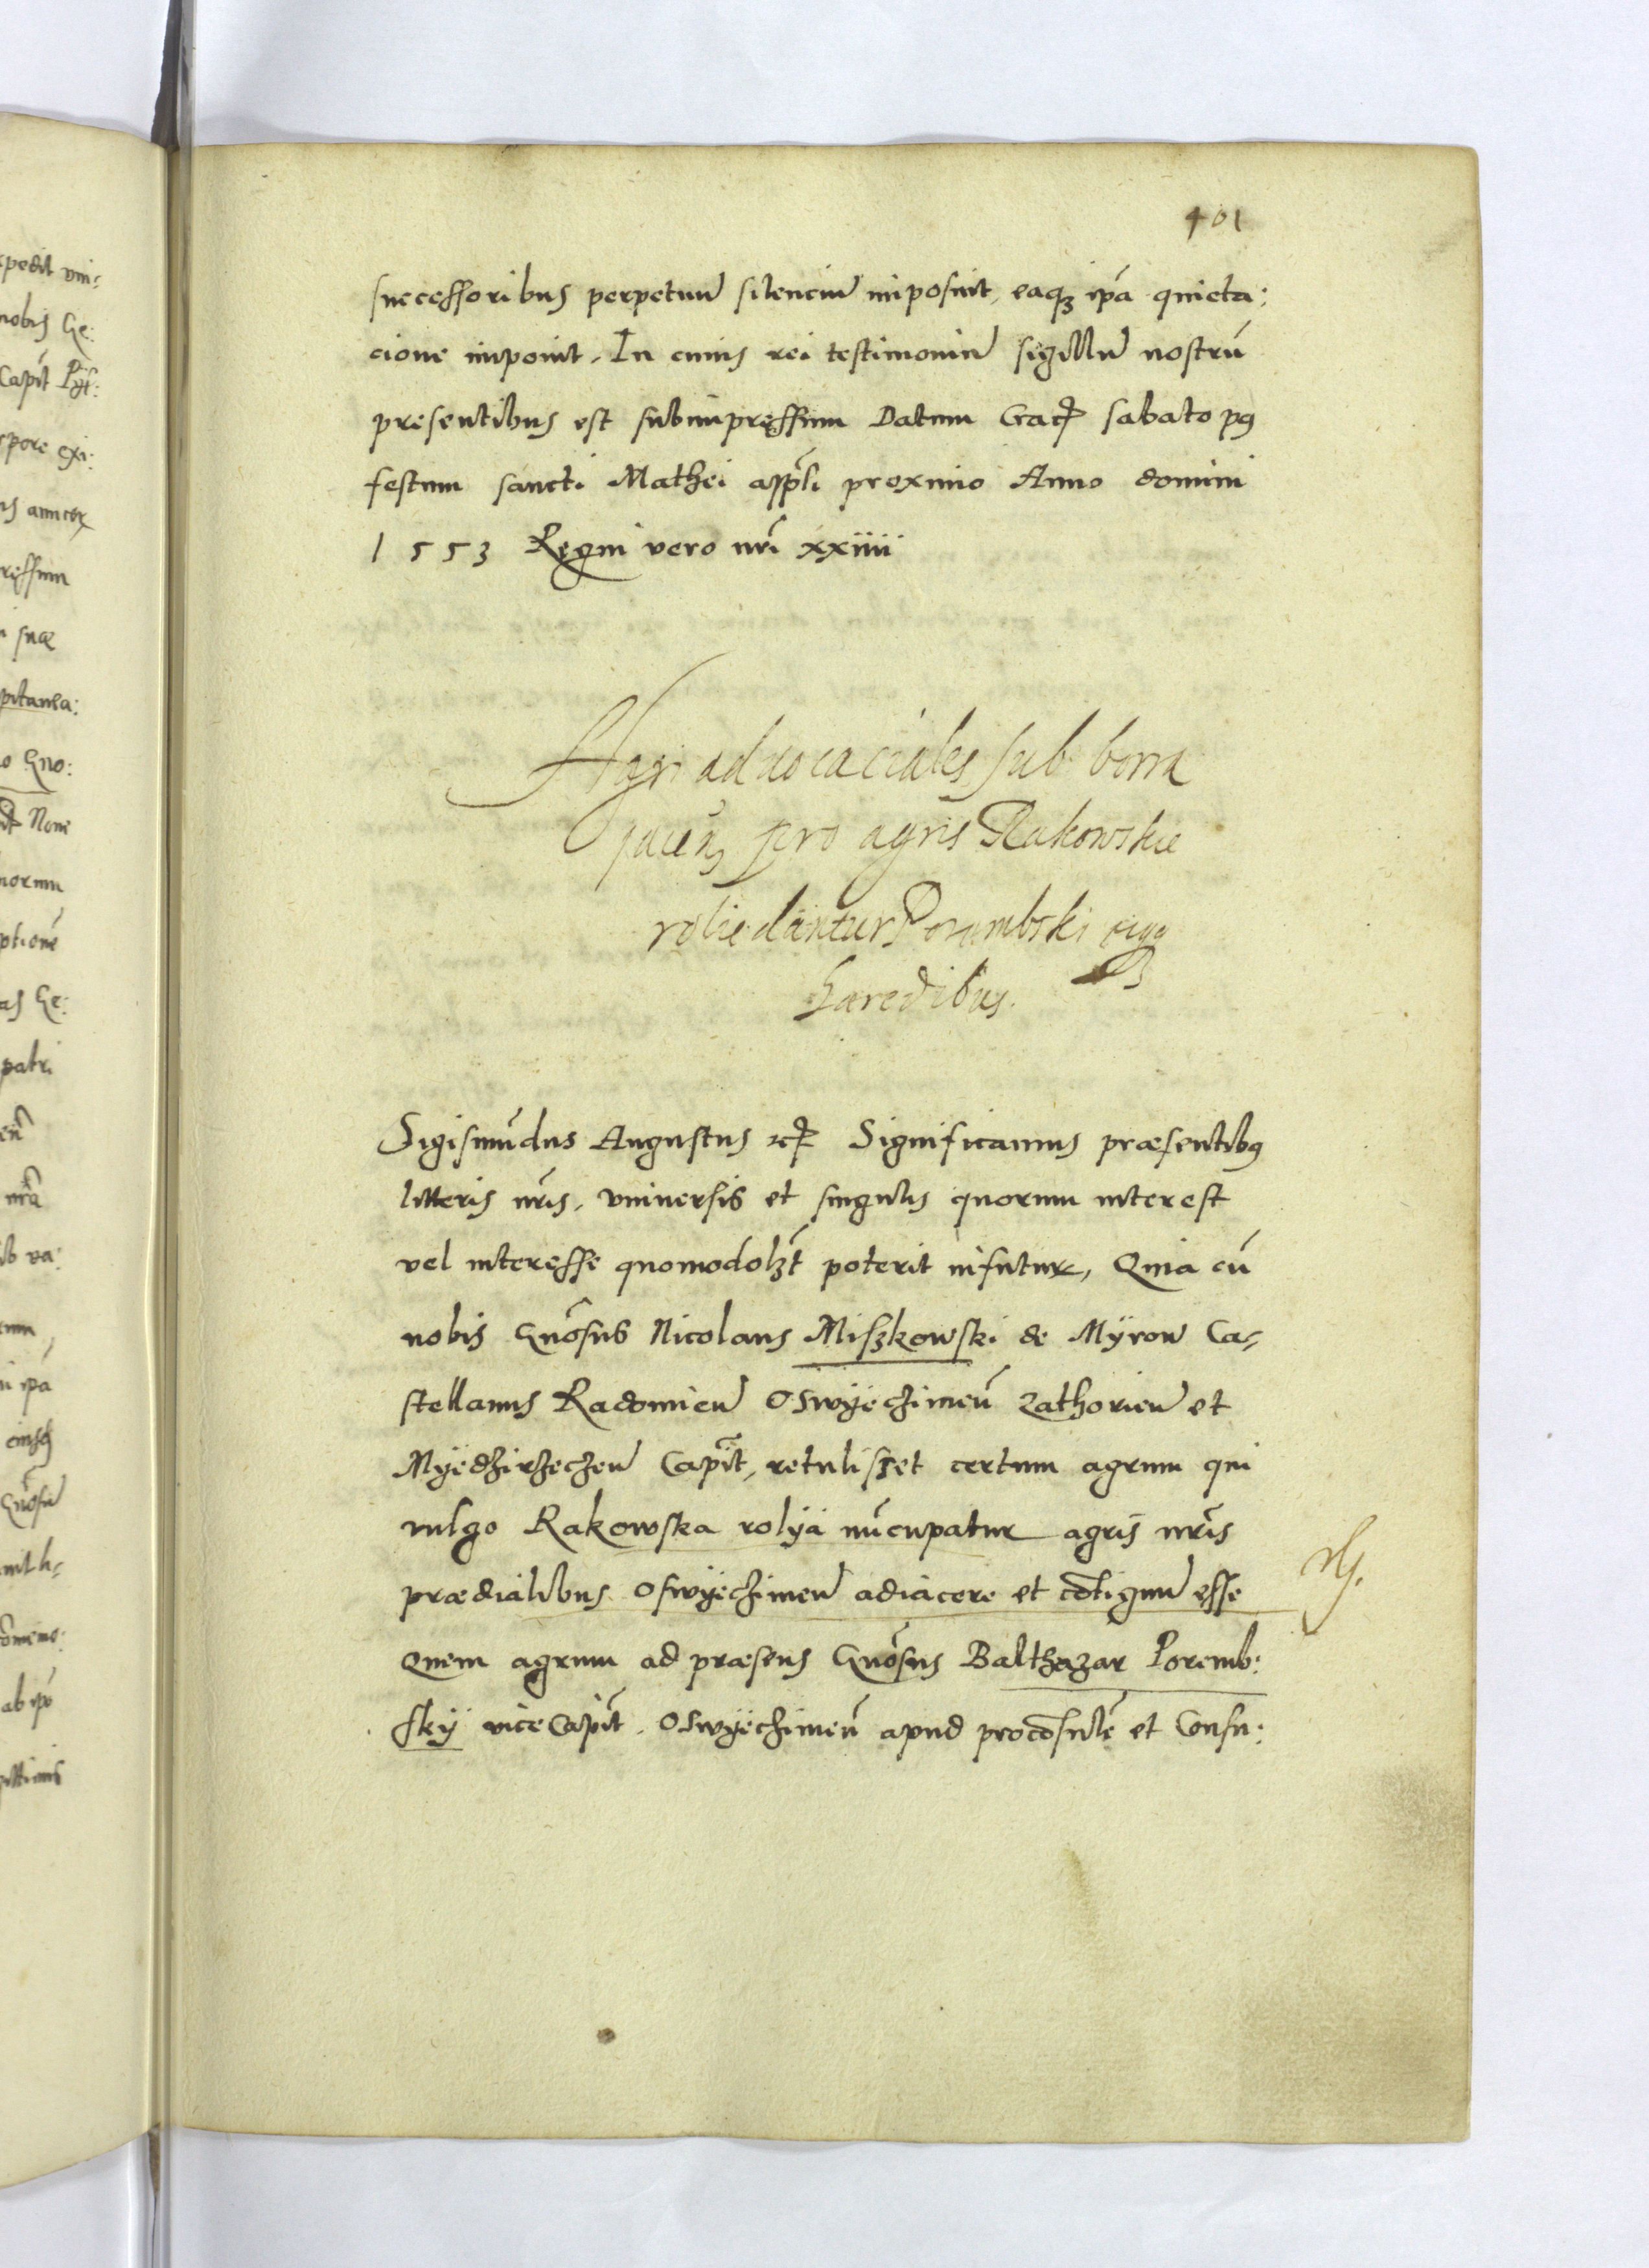 401
successoribus perpetuū silenciū imposuit, eaqȝ ipā quieta:
cione imponit. In cuius rei testimoniū sigillū nostrū
presentibus est subimpressum Datum Crac͞ sabato p9
festum sancti Mathei aṗpli proximo Anno domini
1553 Regni vero nrī xxiiii
Agri aduocaciales sub borra
jacen̄ pro agris Rakowskie
rolie dantur Porumbski eiqȝ
haeredibus.
Sigismūdus Augustus etc͞ Significamus præsentib9
litteris nrīs, vniuersis et singulis quorum interest
vel interesse quomodolzt̄ poterit infutur, Quia cū
nobis Gnōsus Nicolaus Miszkowski de Mÿrow Ca-
stellanus Radomien̄ Oswÿeczimen̄ Zathorien̄ et
Mÿedzirzeczen̄ Capit̄, retulisset certum agrum qui
vulgo Rakowska rolÿa nūcupatur agris nrīs
prædialibus Oswÿeczimen̄ adiacere et cōtiguū esse
Quem agrum ad præsens Gnōsus Balthazar Poremb:
skÿ vice Capit̄. Oswÿeczimen̄ apud procōsulē et Consu: